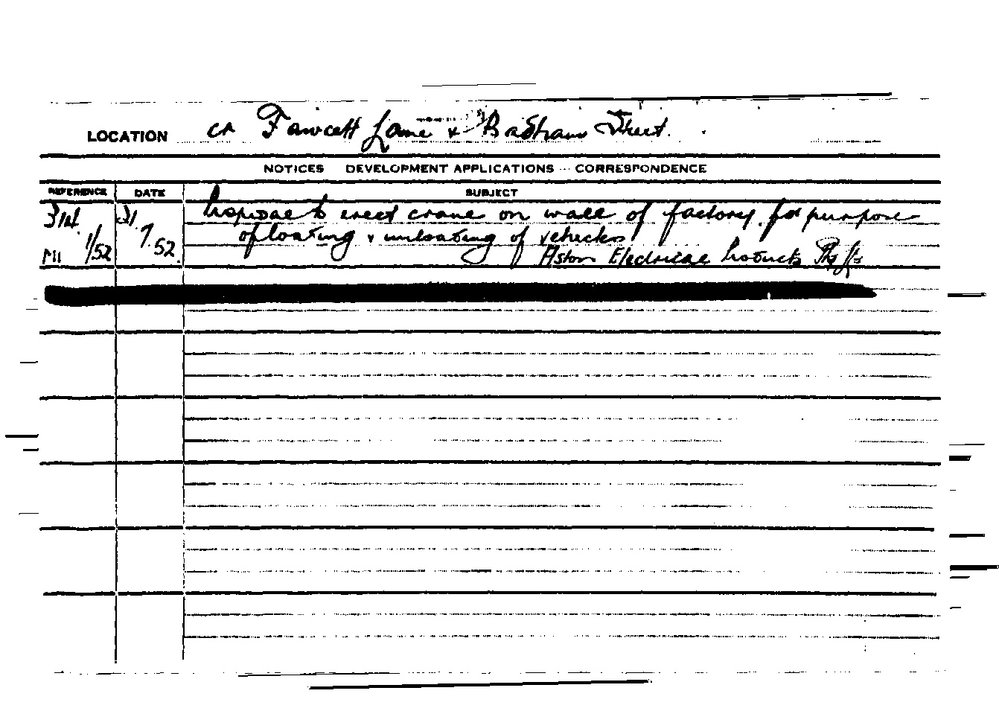 LOCATION cr Fawcett Lane & Bartram Street.
NOTICES DEVELOPMENT APPLICATIONS CORRESPONDENCE
REFERENCE DATE SUBJECT
31 Proposal to erect crane on wall of factory for purpose
1/52 7 52. of loading & unloading of vehicles
Aston Electrical Products